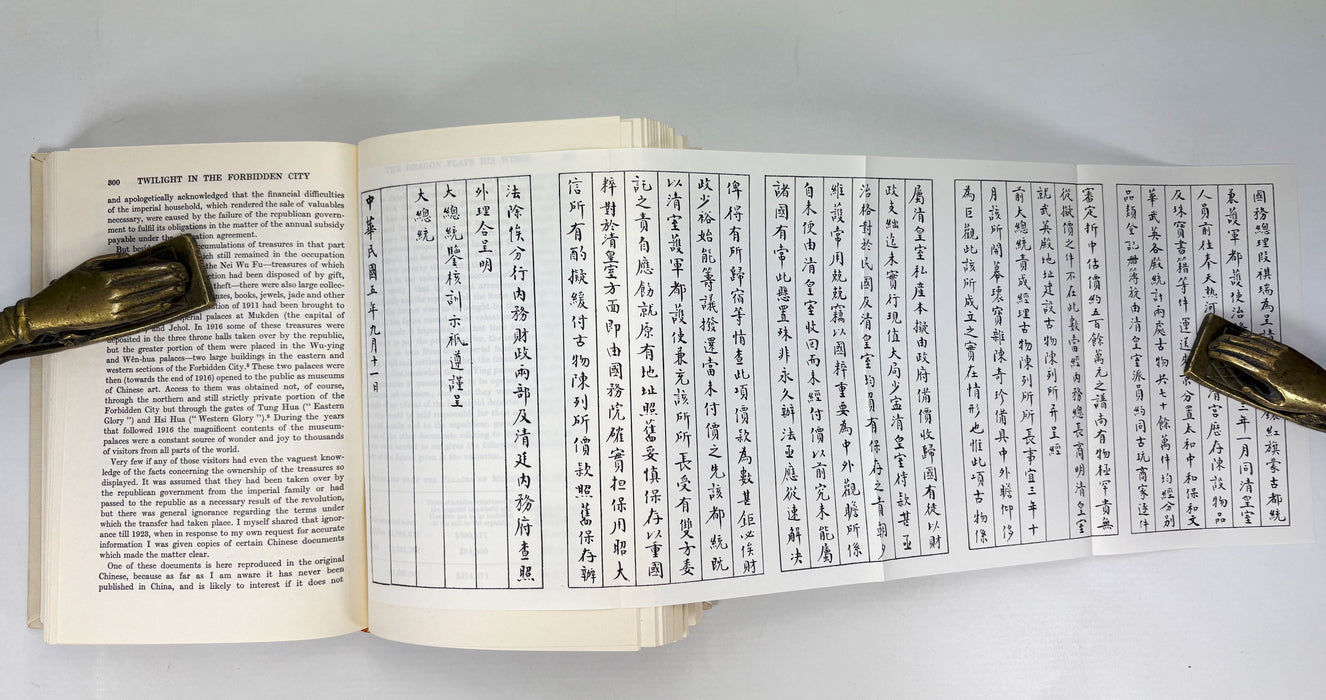 300 TWILIGHT IN THE FORBIDDEN CITY
and apologetically acknowledged that the financial difficulties
of the imperial household, which rendered the sale of valuables
necessary, were caused by the failure of the republican govern-
ment to fulfil its obligations in the matter of the annual subsidy
payable under the agreement.
But accumulations of treasures in that part
which still remained in the occupation
the Nei Wu Fu—treasures of which
had been disposed of by gift,
theft—there were also large collec-
books, jewels, jade and other
of 1911 had been brought to
palaces at Mukden (the capital of
and Jehol. In 1916 some of these treasures were
deposited in the three throne halls taken over by the republic,
but the greater portion of them were placed in the Wu-ying
and Wên-hua palaces—two large buildings in the eastern and
western sections of the Forbidden City.⁸ These two palaces were
then (towards the end of 1916) opened to the public as museums
of Chinese art. Access to them was obtained not, of course,
through the northern and still strictly private portion of the
Forbidden City but through the gates of Tung Hua (“ Eastern
Glory ”) and Hsi Hua (“ Western Glory ”).⁹ During the years
that followed 1916 the magnificent contents of the museum-
palaces were a constant source of wonder and joy to thousands
of visitors from all parts of the world.
Very few if any of those visitors had even the vaguest know-
ledge of the facts concerning the ownership of the treasures so
displayed. It was assumed that they had been taken over by
the republican government from the imperial family or had
passed to the republic as a necessary result of the revolution,
but there was general ignorance regarding the terms under
which the transfer had taken place. I myself shared that ignor-
ance till 1923, when in response to my own request for accurate
information I was given copies of certain Chinese documents
which made the matter clear.
One of these documents is here reproduced in the original
Chinese, because as far as I am aware it has never been
published in China, and is likely to interest if it does not
國務總理段祺瑞為呈請紅旗蒙古都統
兼護軍都護使治三年一月同清皇室
人員前往奉天熱河清宮應存陳設物品
及珠寶書籍等件運送京分置太和中和保和文
華武英各殿統計兩處古物共七十餘萬件均經分別
品類登記冊簿旋由清皇室派員約同古玩商家逐件
審定折中估價約五百餘萬元之譜尚有物極罕貴無
從擬價之件不在此數當經內務總長商明清皇室
就武英殿地址建設古物陳列所并呈經
前大總統責成經理古物陳列所所長事宜三年十
月該所開幕瓌寶雜陳奇珍備具中外瞻仰侈
為巨觀此該所成立之實在情形也惟此項古物係
屬清皇室私產本擬由政府備價收歸國有徒以財
政支絀迄未實行現值大局少定清皇室待款甚亟
治格對於民國及清皇室均負有保存之責朝夕
維護常用兢兢竊以國粹重要為中外觀瞻所係
自未便由清皇室收回而未經付價以前究未能屬
諸國有常此懸置殊非永久辦法亟應從速解決
俾得有所歸宿等情查此項價款為數甚鉅必俟財
政少裕始能籌議撥還當未付價之先該都統既
以清室護軍都護使兼充該所所長受有雙方委
託之責自應飭就原有地址照舊妥慎保存以重國
粹對於清皇室方面即由國務院確實担保用昭大
信所有酌擬緩付古物陳列所價款照舊保存辦
法除俟分行內務財政兩部及清廷內務府查照
外理合呈明
大總統鑒核訓示祇遵謹呈
大總統
中華民國五年九月十一日